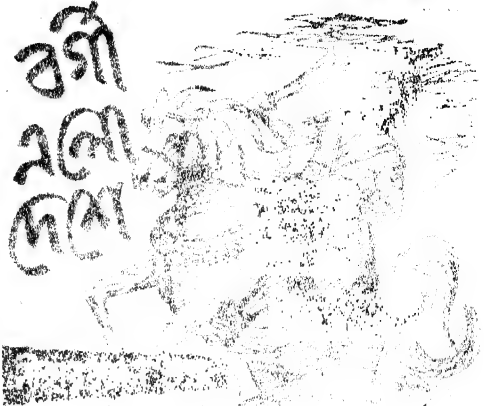 বর্গী
এলো
দেশে